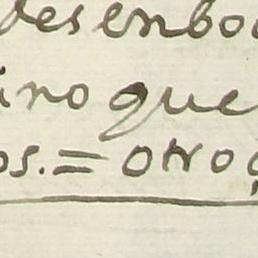 desenbo
ino que
os. = otro